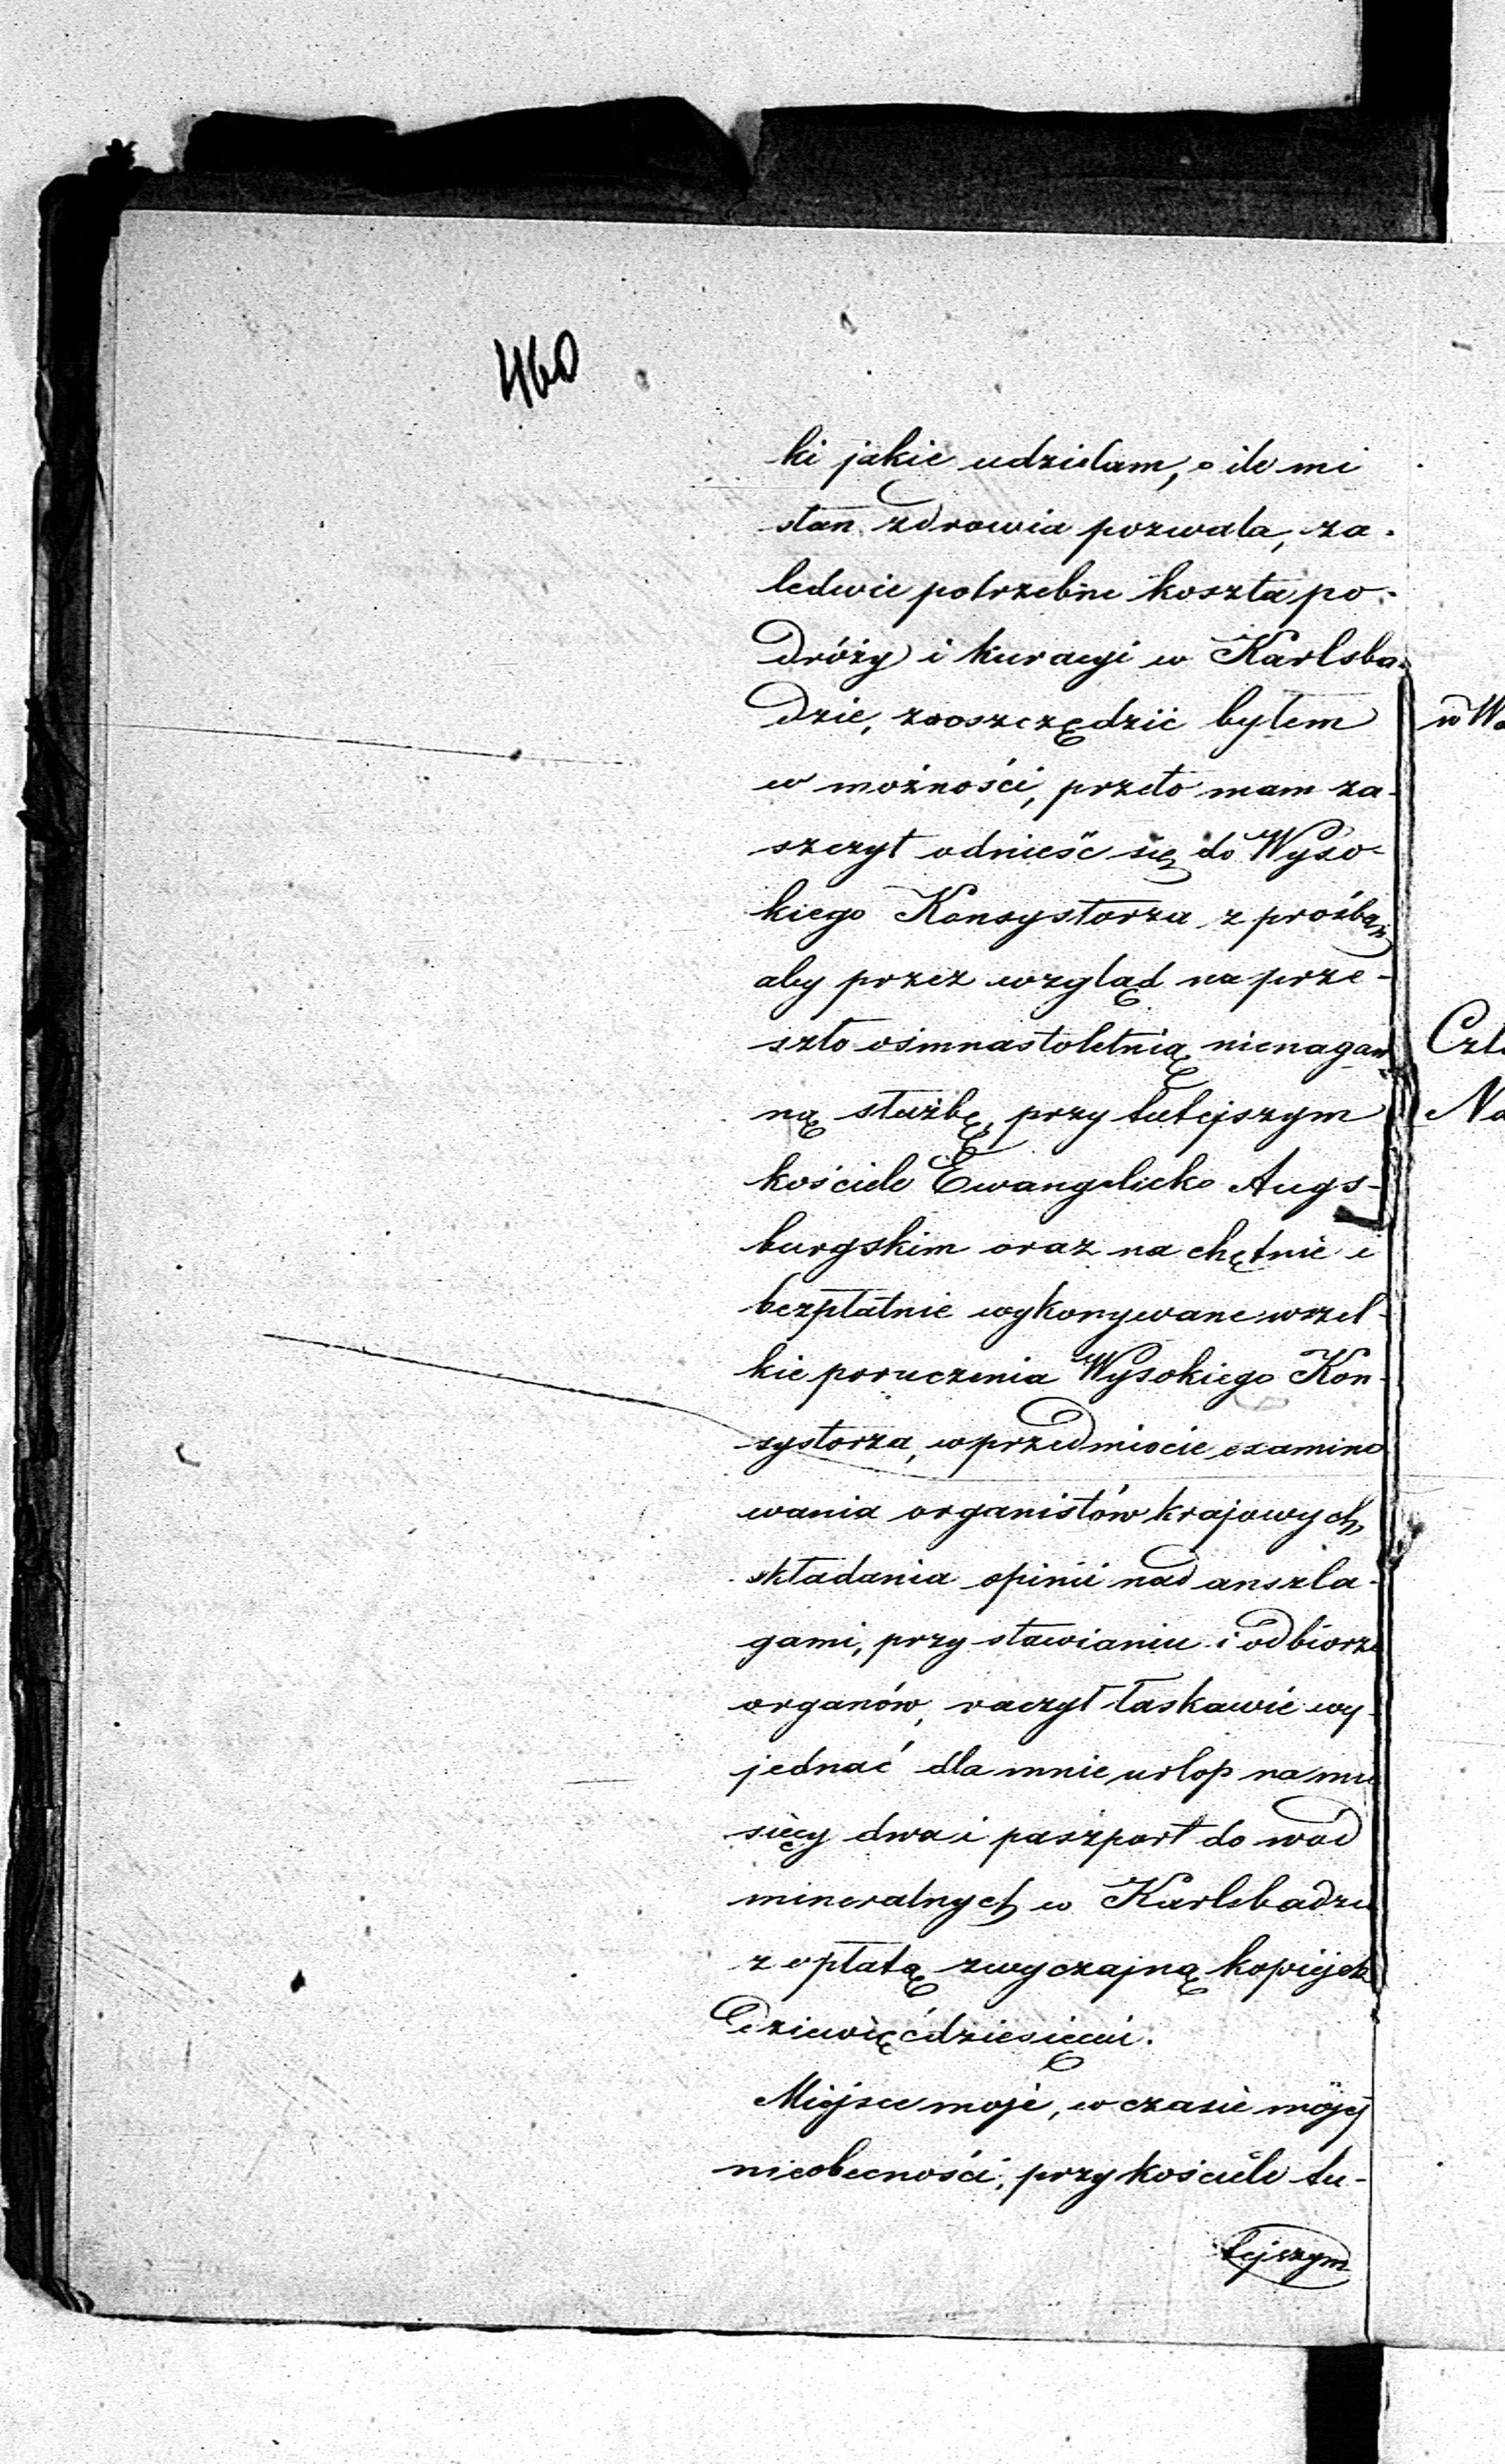 460
ki jakie udzielam, o ile mi
stan zdrowia pozwala, za-
ledwie potrzebne koszta po-
dróży i kuracyi w Karlsba-
dzie, zaoszczędzić byłem
w możności, przeto mam za-
szczyt odnieść się do Wyso-
kiego Konsystorza z prośbą,
aby przez wzgląd na prze-
szło ośmnastoletnią nienagan
ną służbę, przy tutejszym
kościele Ewangelicko Augs-
burgskim oraz na chętnie i
bezpłatnie wykonywane wszel-
kie poruczenia Wysokiego Kon-
systorza, w przedmiocie examino
wania organistów krajowych,
składania opinii nad anszla-
gami, przy stawianiu i odbiorze
organów, raczył łaskawie wy-
jednać dla mnie urlop na mie
sięcy dwa i paszport do wód
mineralnych w Karlsbadzie
z opłatą zwyczajną kopiejek
dziewięćdziesięciu.
Miejsce moje, w czasie mojej
nieobecności, przy kościele tu-
tejszym
w Wa
Czł
Na